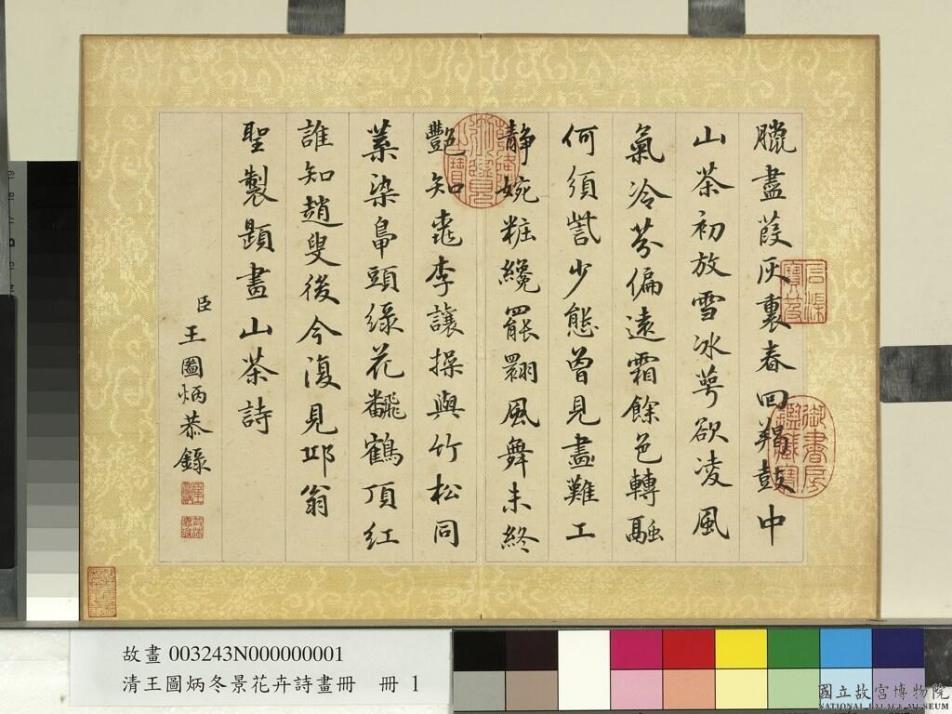 臘盡葭灰裏春回羯鼓中
山茶初放雪冰萼欲凌風
氣冷芬偏遠霜餘色轉融
何須訾少態曾見畫難工
靜婉粧纔罷翾風舞未終
豔知桃李讓操與竹松同
葉染鳧頭綠花飜鶴頂紅
誰知趙叟後今復見邛翁
聖製題畫山茶詩
臣王圖炳恭錄
石渠寶笈
御書房鑑藏寶
乾隆御覽之寶
故畫 003243N000000001
清王圖炳冬景花卉詩畫冊 冊 1
國立故宮博物院
NATIONAL PALACE MUSEUM